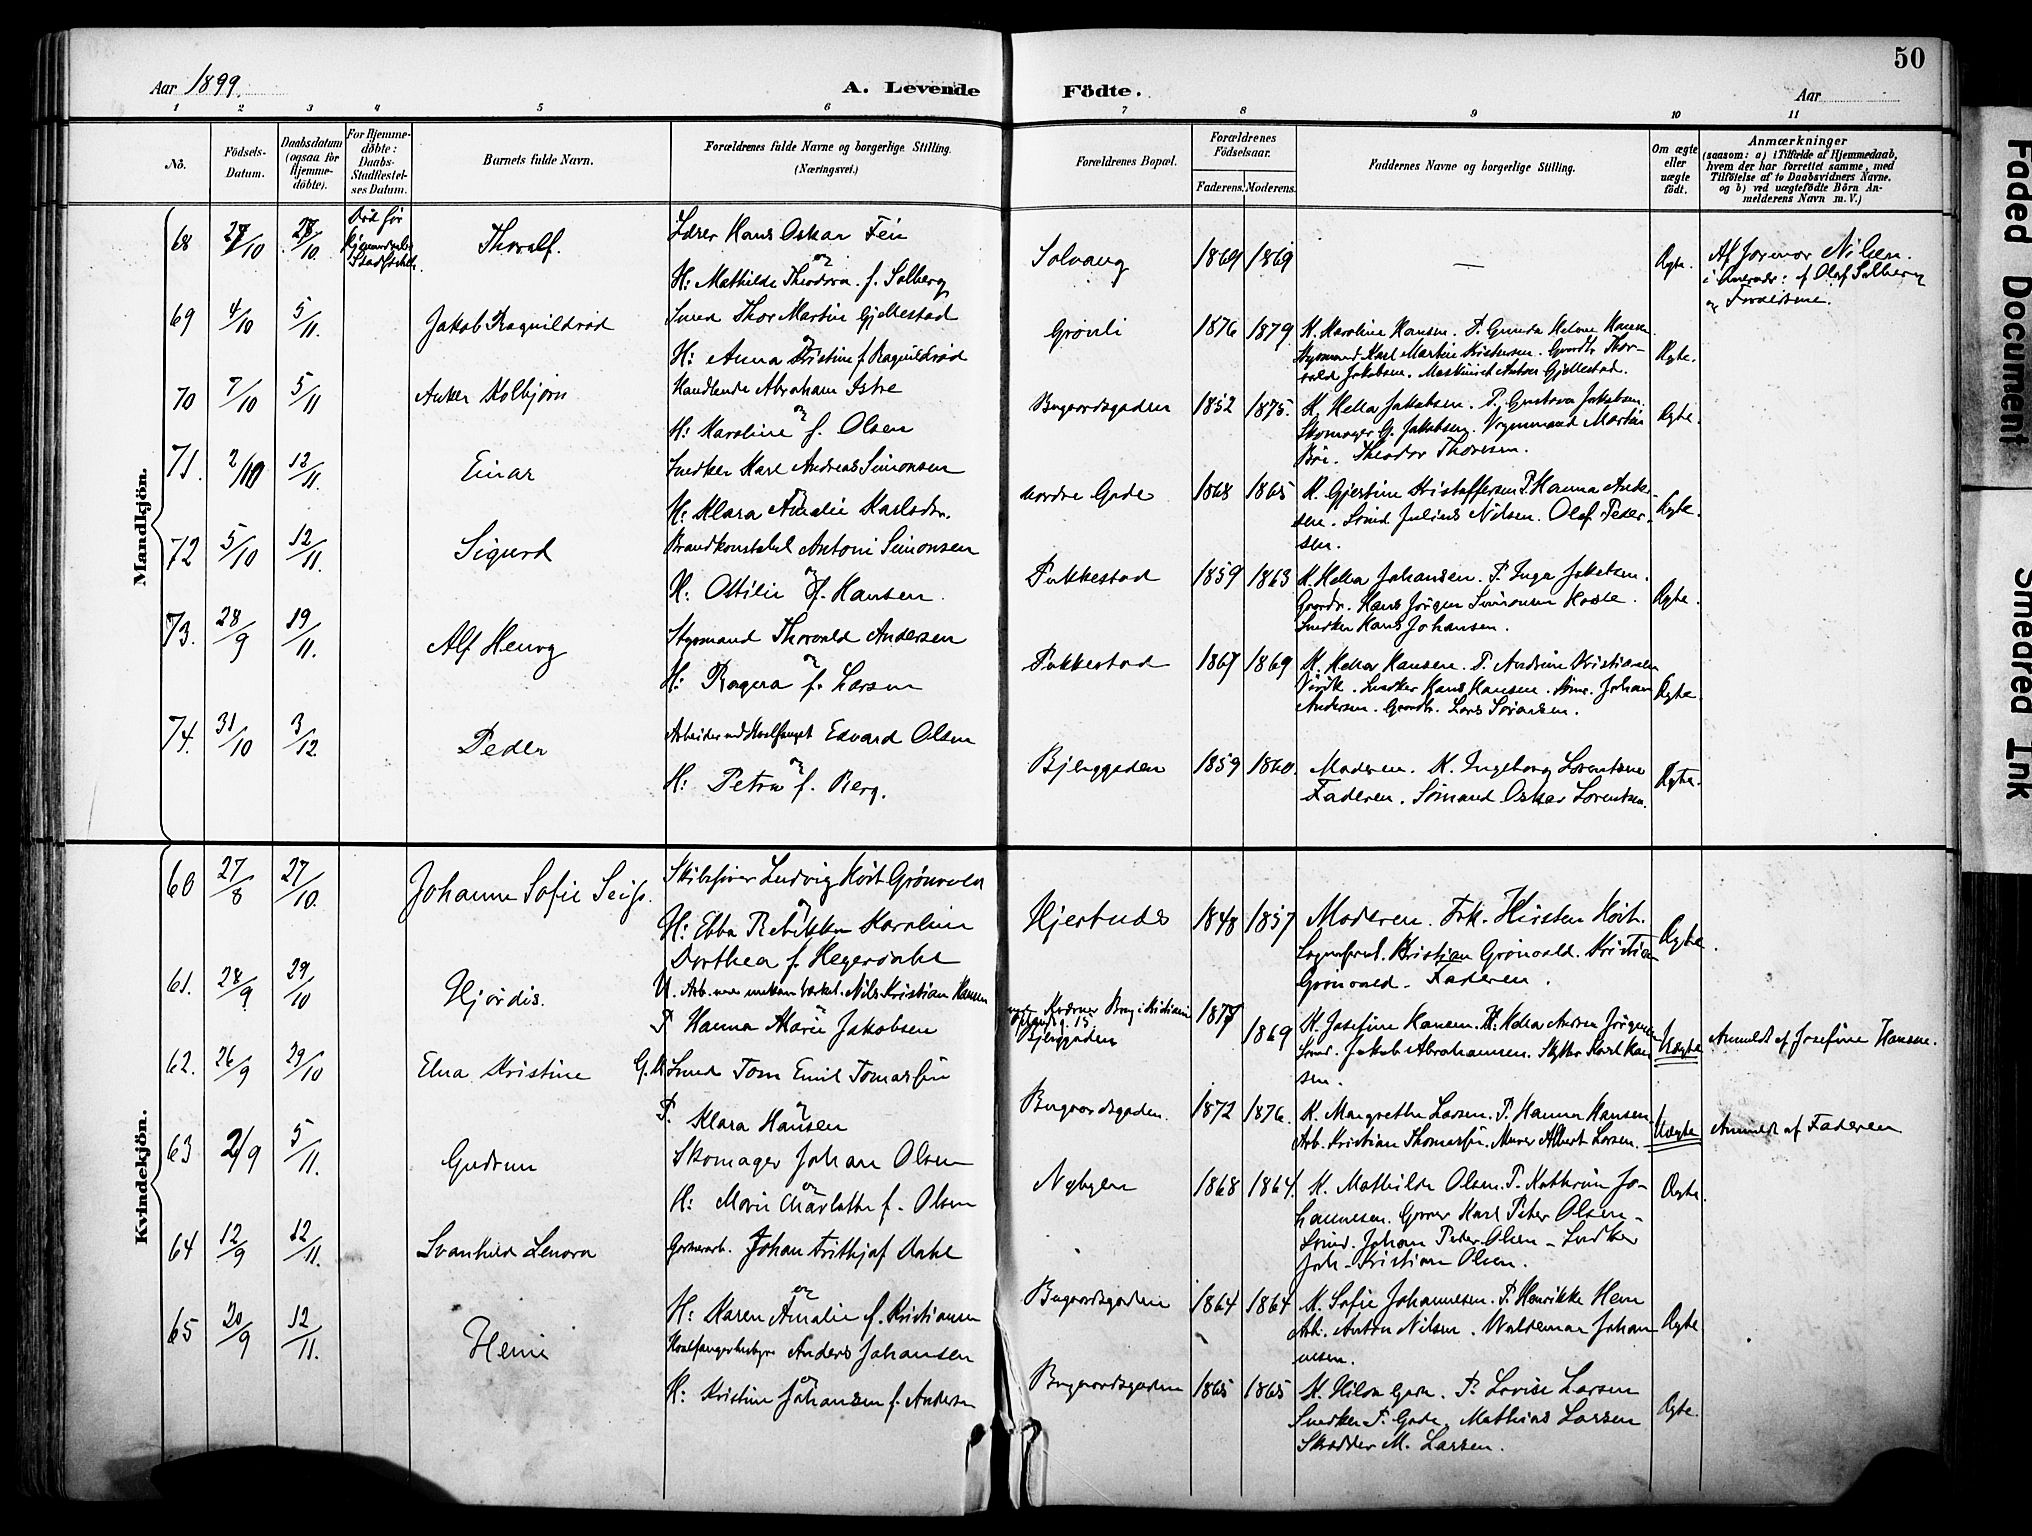 50
Aar 1899.
A. Levende Födte.
Aar
1 2 3 4 5 6 7 8 9 10 11
Nö.
Födsels-
Datum.
Daabsdatum
(ogsaa for
Hjemme-
döbte).
For Hjemme-
döbte:
Daabs-
Stadfæstel-
ses Datum.
Barnets fulde Navn.
Forældrenes fulde Navne og borgerlige Stilling.
(Næringsvei.)
Forældrenes Bopæl.
Forældrenes
Födselsaar.
Faderens. Moderens.
Faddernes Navne og borgerlige Stilling.
Om ægte
eller
uægte
födt.
Anmærkninger
(saasom: a) i Tilfælde af Hjemmedaab,
hvem der har forrettet samme, med
Tilföielse af to Daabsvidners Navne.
og b) ved uægtefödte Börn An-
melderens Navn m. V.)
Mandkjön.
68 27/10 28/10 Död før
Thoralf.
Lærer Hans Oskar Fein
og
H: Mathilde Theodora f. Solberg
Solvang 1869 1869 — Ægte.
Af Jormor Nilsen.
af Olaf Solberg
og Forældrene.
69 4/10 5/11. Jakob Ragnildrød
Smed Thor Martin Gjellestad
og
H: Anna Kristine f. Ragnildrød
Grønli 1876 1879.
K. Karoline Hansen. P. Gunda Helene Hansen.
Styrmand Karl Martin Kristensen. Gaardbr. Thor-
vald Jakobsen. Maskinist Anton Gjellestad.
Ægte.
70 7/10 5/11 Anker Kolbjørn
Handlende Abraham Istre
og
H: Karoline f. Olsen
Bugaardsgaden 1852 1875.
K. Hella Jakobsen. P. Gustava Jakobsen.
Skomager G. Jakobsen. Styrmand Martin
Bøe. Theodor Thoresen.
Ægte.
71. 2/10 12/11. Einar
Snedker Karl Andreas Simonsen
og
H: Klara Amalie Karlsdtr.
nordre Gade 1868 1865
K. Gjertine Kristoffersen P. Hanna Ander-
sen. Sömd. Julius Nilsen. Olaf Peder-
sen.
Ægte.
72 5/10 12/11. Sigurd
Brandkonstabel Antoni Simonsen
og
H: Ottilie f. Hansen.
Pukkestad 1859 1863
K. Hella Johansen. P. Inga Jakobsen.
Gaardbr. Hans Jörgen Simonsen Hasle.
Snedker Hans Johansen.
Ægte.
73. 28/9 19/11. Alf Henry
Styrmand Thorvald Andersen
og
H: Ragna f. Larsen
Pukkestad 1867 1869
K. Hella Hansen. P. Andrine Kristiansen
Virik. Snedker Hans Hansen. Sömd. Johan
Andersen. Gaardbr. Lars Sörensen.
Ægte.
74. 31/10 3/12. Peder
Arbeider ved Hvalfanget Edvard Olsen
og
H: Petra f. Berg.
Bjerggaden 1859 1860.
Moderen. K. Ingeborg Lorentsen
Faderen. Sömand Oskar Lorentsen.
Ægte.
Kvindekjön.
60 27/8 27/10. Johanne Sofie Seip.
Skibsfører Ludvig Kört Grönvold
og
H: Ebba Rebekka Karoline
Dorthea f. Hegerdahl
Hjertnes 1848 1857
Moderen. Frk. Kirsten Kört.
Sagförerf. Kristian Grönvold. Kristian
Grönvold. Faderen.
Ægte.
61. 28/9 29/10 Hjördis.
U. Arb. ved mekan. Værkst. Nils Kristian Hansen
og
P Hanna Marie Jakobsen
Kværner Brug i Kristiania
Bjerggaden
1877 1869
K. Josefine Hansen. P. Hella Andrea Jörgensen
Sömd. Jakob Abrahamsen. Skytter Karl Han-
sen.
Uægte
Anmeldt af Josefine Hansen.
62. 26/9 29/10 Elna Kristine
G.M. Smed Tom Emil Tomassen
og
P. Klara Hansen
Bugaardsgaden. 1872 1876.
K. Margrethe Larsen. P. Hanna Hansen
Arb. Kristian Thomassen. Murer Albert Larsen.
Uægte
Anmeldt af Faderen
63 2/9 5/11. Gudrun
Skomager Johan Olsen
og
H: Marie Charlotte f. Olsen
Nybyen 1868 1864.
K. Mathilde Olsen. P. Kathrine Jo-
hannesen. Garver Karl Peter Olsen-
Sömd. Johan Peter Olsen - Snedker
Joh- Kristian Olsen.
Ægte.
64 12/9 12/11. Svanhild Lenora
Garverarb. Johan Frithjof Dahl
og
H: Karen Amalie f. Kristiansen
Bugaardsgaden 1864 1864
K. Sofie Johannesen. P. Henrikke Hem
Arb. Anton Nilsen. Waldemar Johan
nesen.
Ægte
65 20/9 12/11. Henni
Hvalfangerbestyrer Anders Johansen
og
H: Kristine Johansen f. Andersen
Bugaardsgaden 1865 1865
K. Hilda Gade. P. Lovise Larsen
Snedker P. Gade. Mathias Larsen
Skrædder M. Larsen.
Ægte.
Faded Document
Smeared Ink